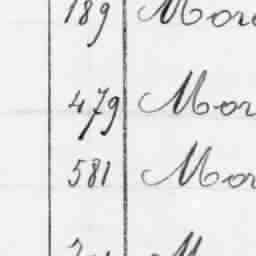 189 Mor
479 Mor
581 Mor